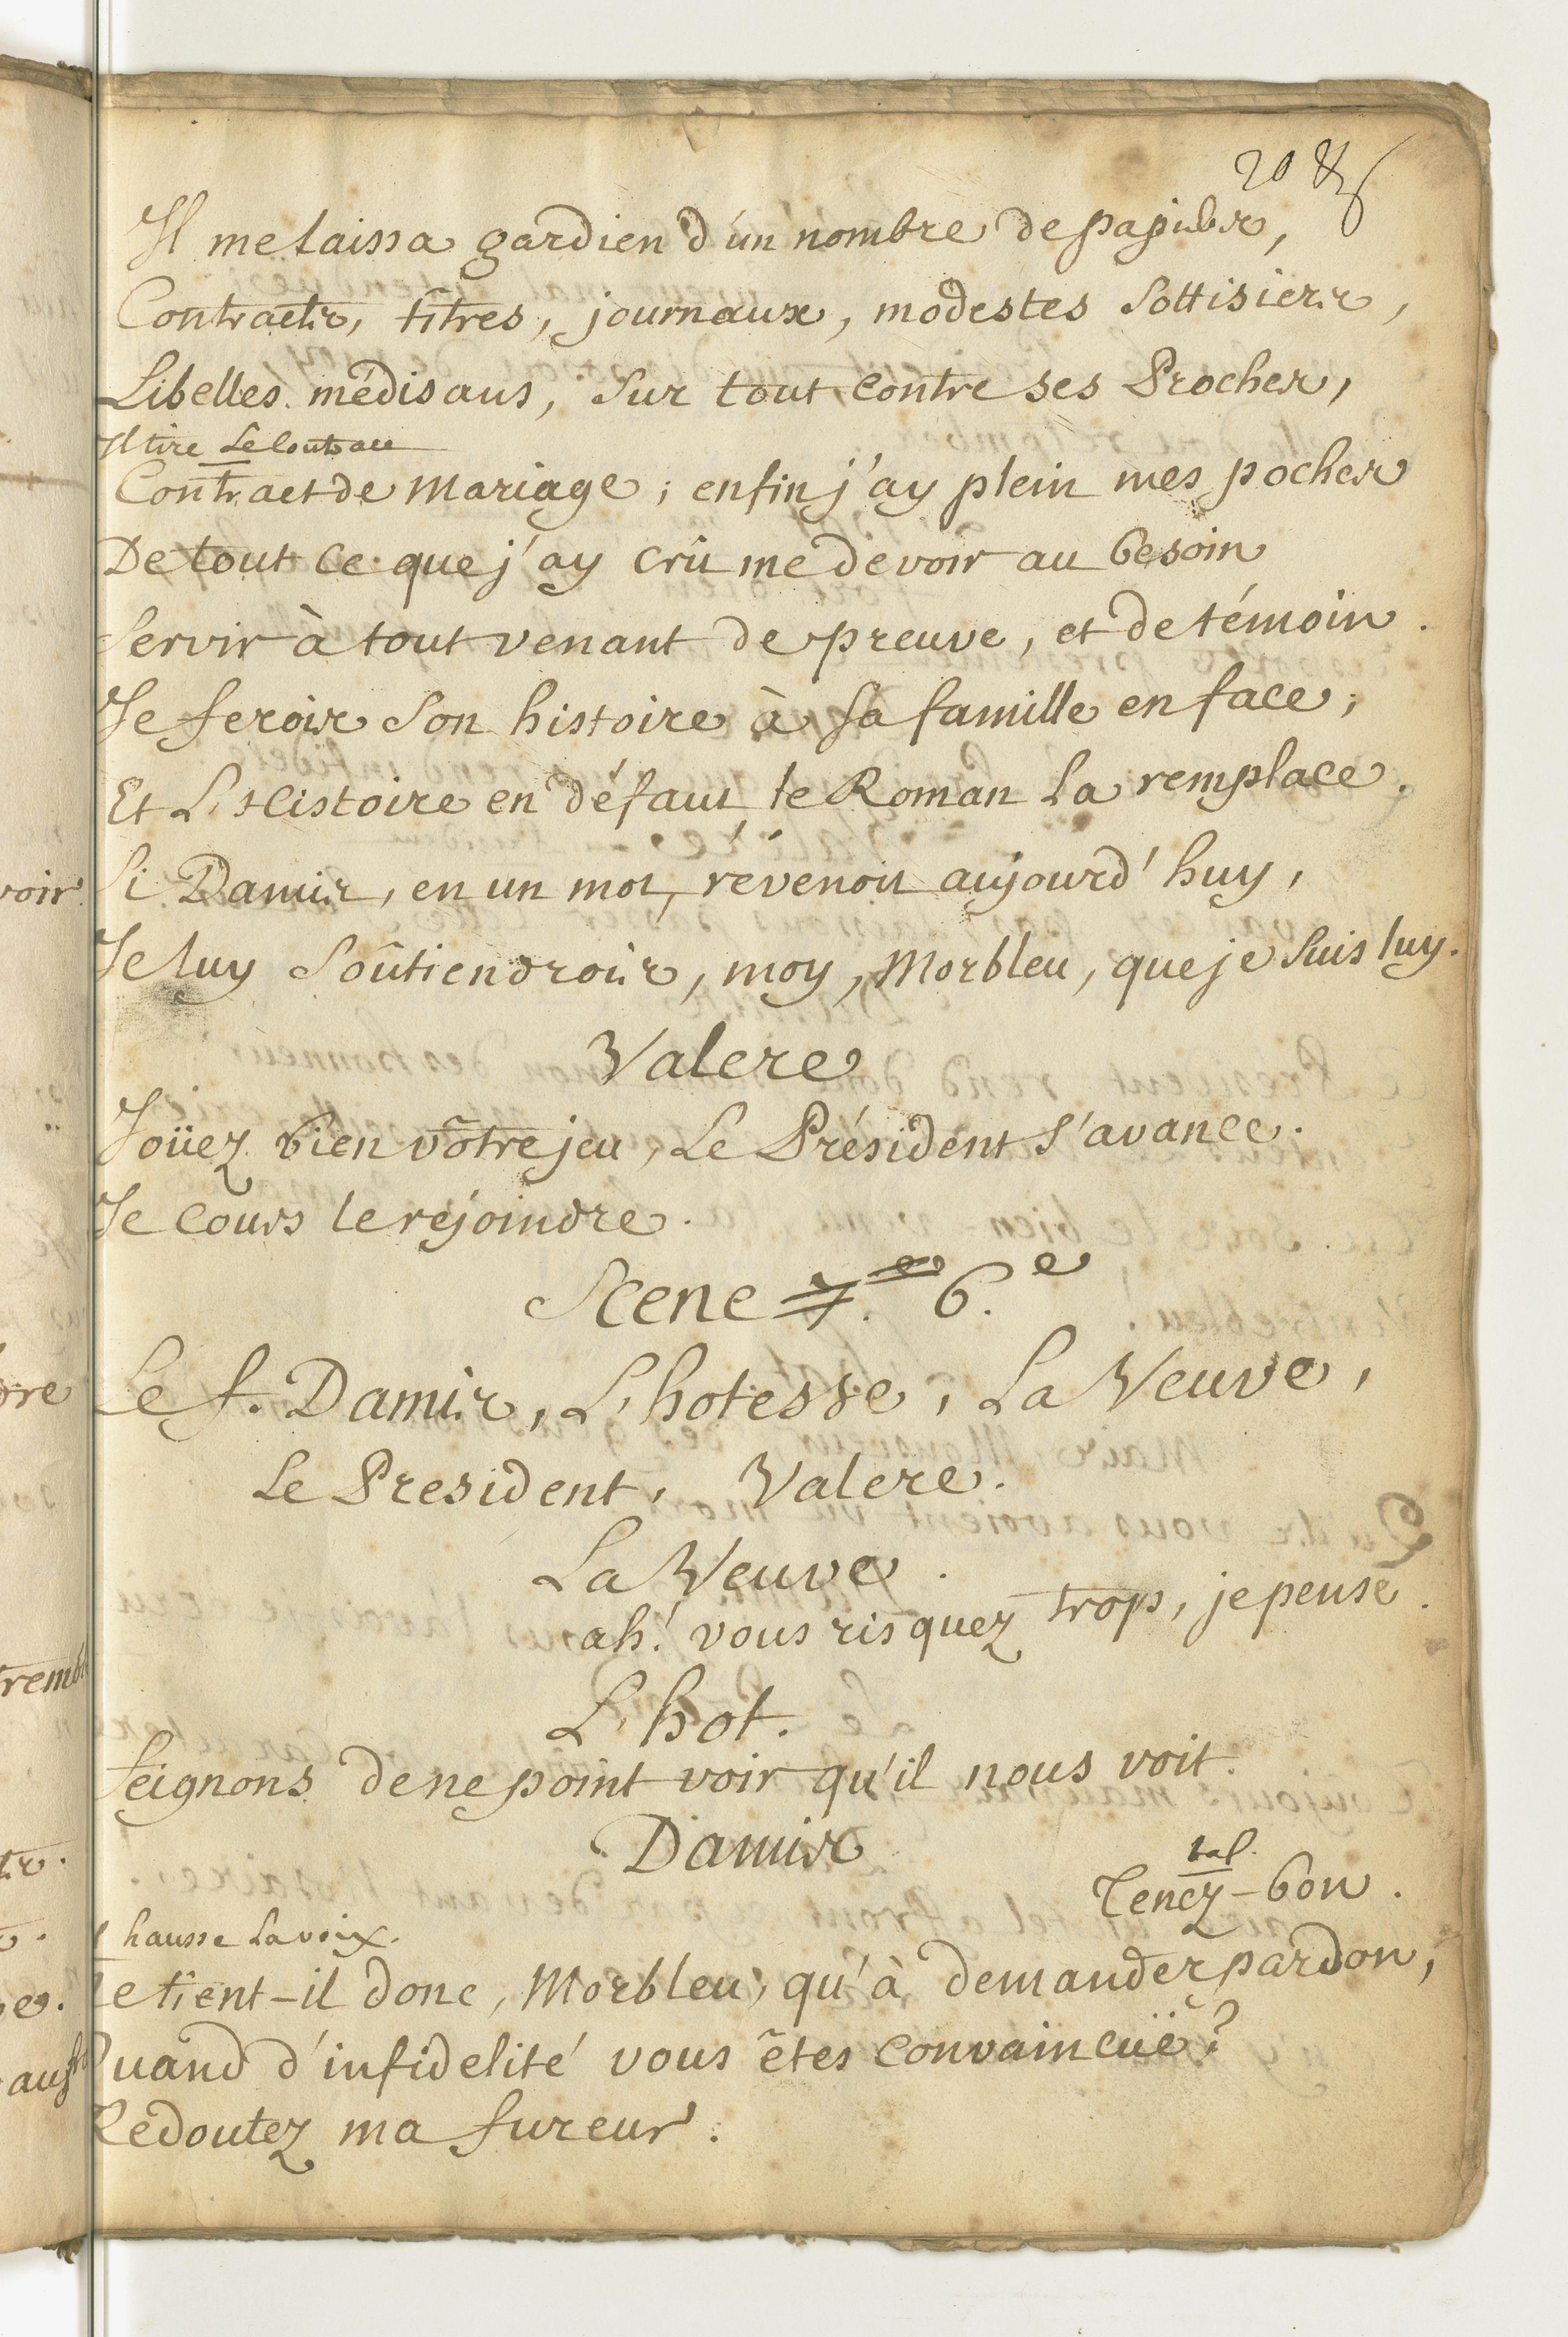 20
Il me laissa gardien d'un nombre de papiers,
Contracts, titres, journaux, modestes Sottisiers,
Libelles médisans, Sur tout contre ses Proches,
Il tire Le Contract
Contract de Mariage ; enfin j'ay plein mes poches
De tout ce que j'ay crû me devoir au besoin
Servir à tout venant de preuve, et de témoin.
Je ferois Son histoire à Sa famille en face ;
Et L'histoire en défaut, le Roman La remplace.
Si Damis, en un mot, revenoit aujourd'huy,
Je luy Soûtiendrois, moy, Morbleu, que je Suis luy.
Valere
Joüez bien vôtre jeu, Le Président s'avance.
Je cours le rejoindre.
Scene 7.e 6.e
Le f. Damis, L'hotesse, La Veuve,
Le President, Valere.
La Veuve.
ah! vous risquez trop, je pense.
L'hot.
Feignons de ne point voir qu'il nous voit.
Damis
Val.
Tenez-bon.
hausse La voix.
Ne tient-il donc, Morbleu, qu'à demander pardon,
Quand d'infidelité vous êtes convaincuë ?
Redoutez ma fureur.